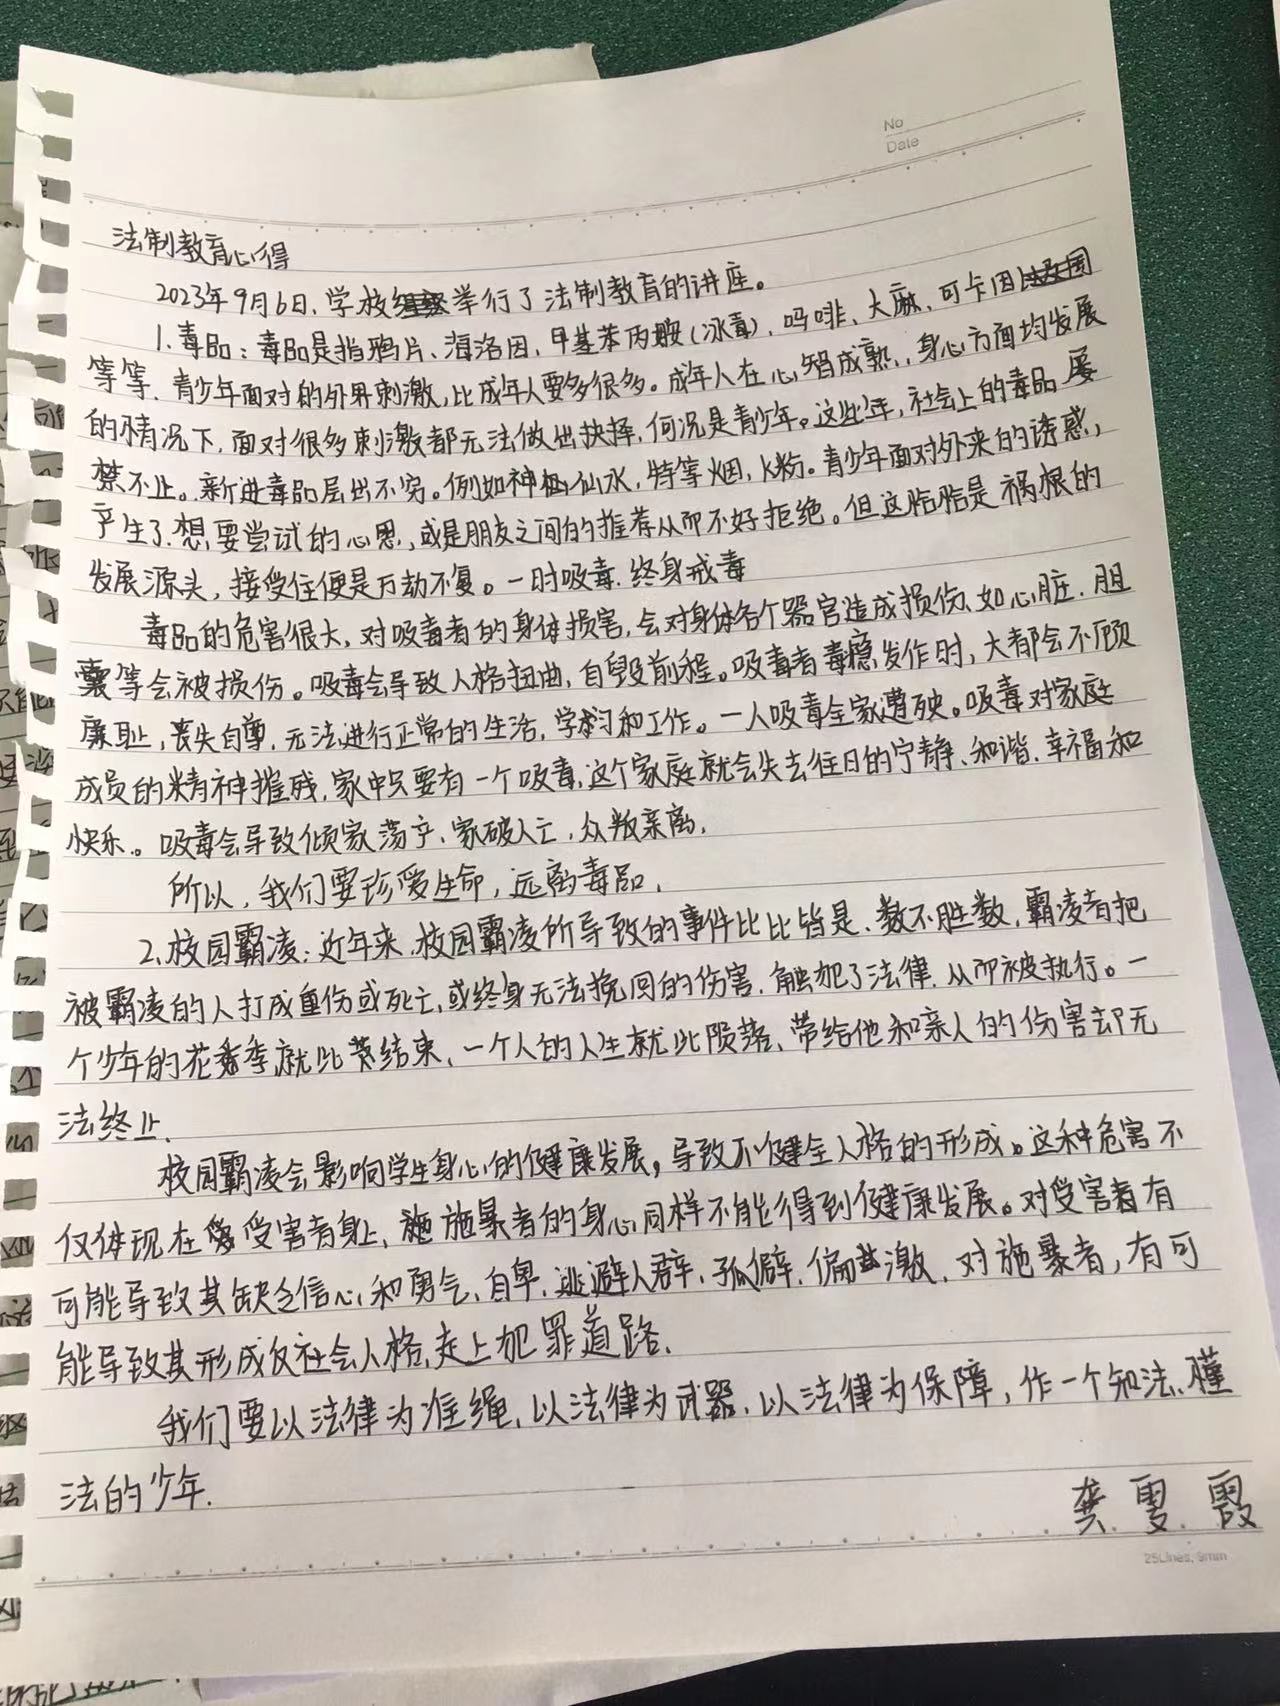 No
Date
法制教育心得
2023年9月6日，学校举行了法制教育的讲座。
1.毒品：毒品是指鸦片、海洛因，甲基苯丙胺（冰毒）、吗啡、大麻、可卡因
等等，青少年面对的外界刺激，比成年人要多很多。成年人在心智成熟，身心方面均发展
的情况下，面对很多刺激都无法做出抉择，何况是青少年。这些年，社会上的毒品屡
禁不止。新进毒品层出不穷。例如神仙水，特等烟，K粉。青少年面对外来的诱惑，
产生了想要尝试的心思，或是朋友之间的推荐从而不好拒绝。但这恰恰是祸根的
发展源头，接受住便是万劫不复。一时吸毒，终身戒毒
毒品的危害很大，对吸毒者的身体损害，会对身体各个器官造成损伤，如心脏、胆
囊等会被损伤。吸毒会导致人格扭曲，自毁前程。吸毒者毒瘾发作时，大都会不顾
廉耻，丧失自尊，无法进行正常的生活，学习和工作。一人吸毒全家遭殃。吸毒对家庭
成员的精神摧残，家中只要有一个吸毒，这个家庭就会失去往日的宁静、和谐、幸福和
快乐。吸毒会导致倾家荡产、家破人亡，众叛亲离，
所以，我们要珍爱生命，远离毒品，
2、校园霸凌：近年来，校园霸凌所导致的事件比比皆是、数不胜数，霸凌者把
被霸凌的人打成重伤或死亡，或终身无法挽回的伤害，触犯了法律，从而被执行。一
个少年的花季就此结束，一个人的人生就此陨落，带给他和亲人的伤害却无
法终止，
校园霸凌会影响学生身心的健康发展，导致不健全人格的形成。这种危害不
仅体现在受害者身上，施暴者的身心同样不能得到健康发展。对受害者有
可能导致其缺乏信心和勇气，自卑，逃避人群，孤僻，偏激，对施暴者，有可
能导致其形成反社会人格，走上犯罪道路，
我们要以法律为准绳，以法律为武器，以法律为保障，作一个知法、懂
法的少年．
龚雯霞
25Lines, 9mm